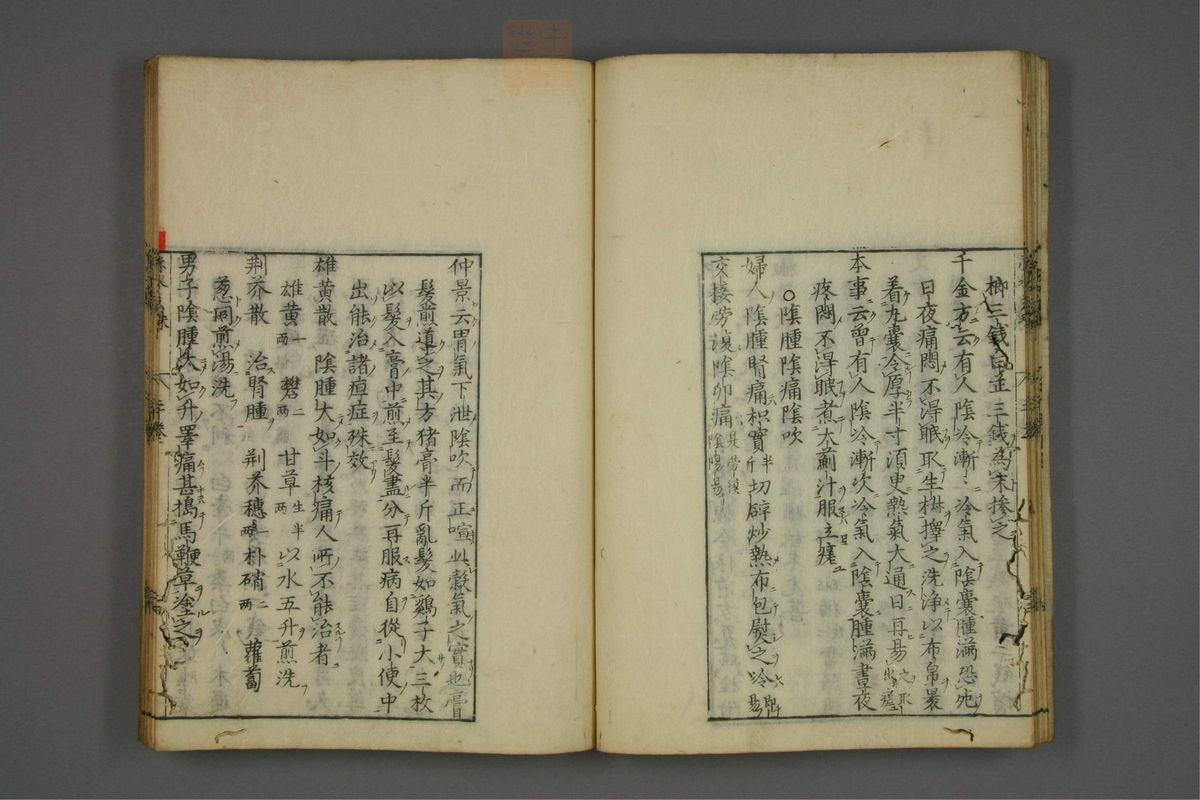 榔三錢白芷三錢為末摻之
千金方云有人陰冷漸〻冷氣入陰囊腫滿恐死
日夜痛悶不得眠取生椒擇之洗淨以布帛裹
着丸囊冷厚半寸須臾熱氣大通日再易之取出瘥
本事云曾有人陰冷漸次冷氣入陰囊腫滿晝夜
疼悶不得眠煮大薊汁服立瘥
○陰腫陰痛陰吹
婦人陰腫腎痛枳實半斤切碎炒熱布包熨之冷即易
交接勞復陰卵痛
仲景云胃氣下泄陰吹而正喧此穀氣之實也膏
髮煎導之其方猪膏半斤亂髮如鷄子大三枚
以髮入膏中煎至髮盡分再服病自從小便中
出能治諸疸症殊效
雄黃散 陰腫大如斗核痛人所不能治者
雄黃一兩 礬二兩 甘草生半兩 以水五升煎洗
荆芥散 治腎腫 荆芥穗一兩 朴硝二兩 蘿蔔
葱同煎湯洗
男子陰腫大如升睪痛甚搗馬鞭草塗之